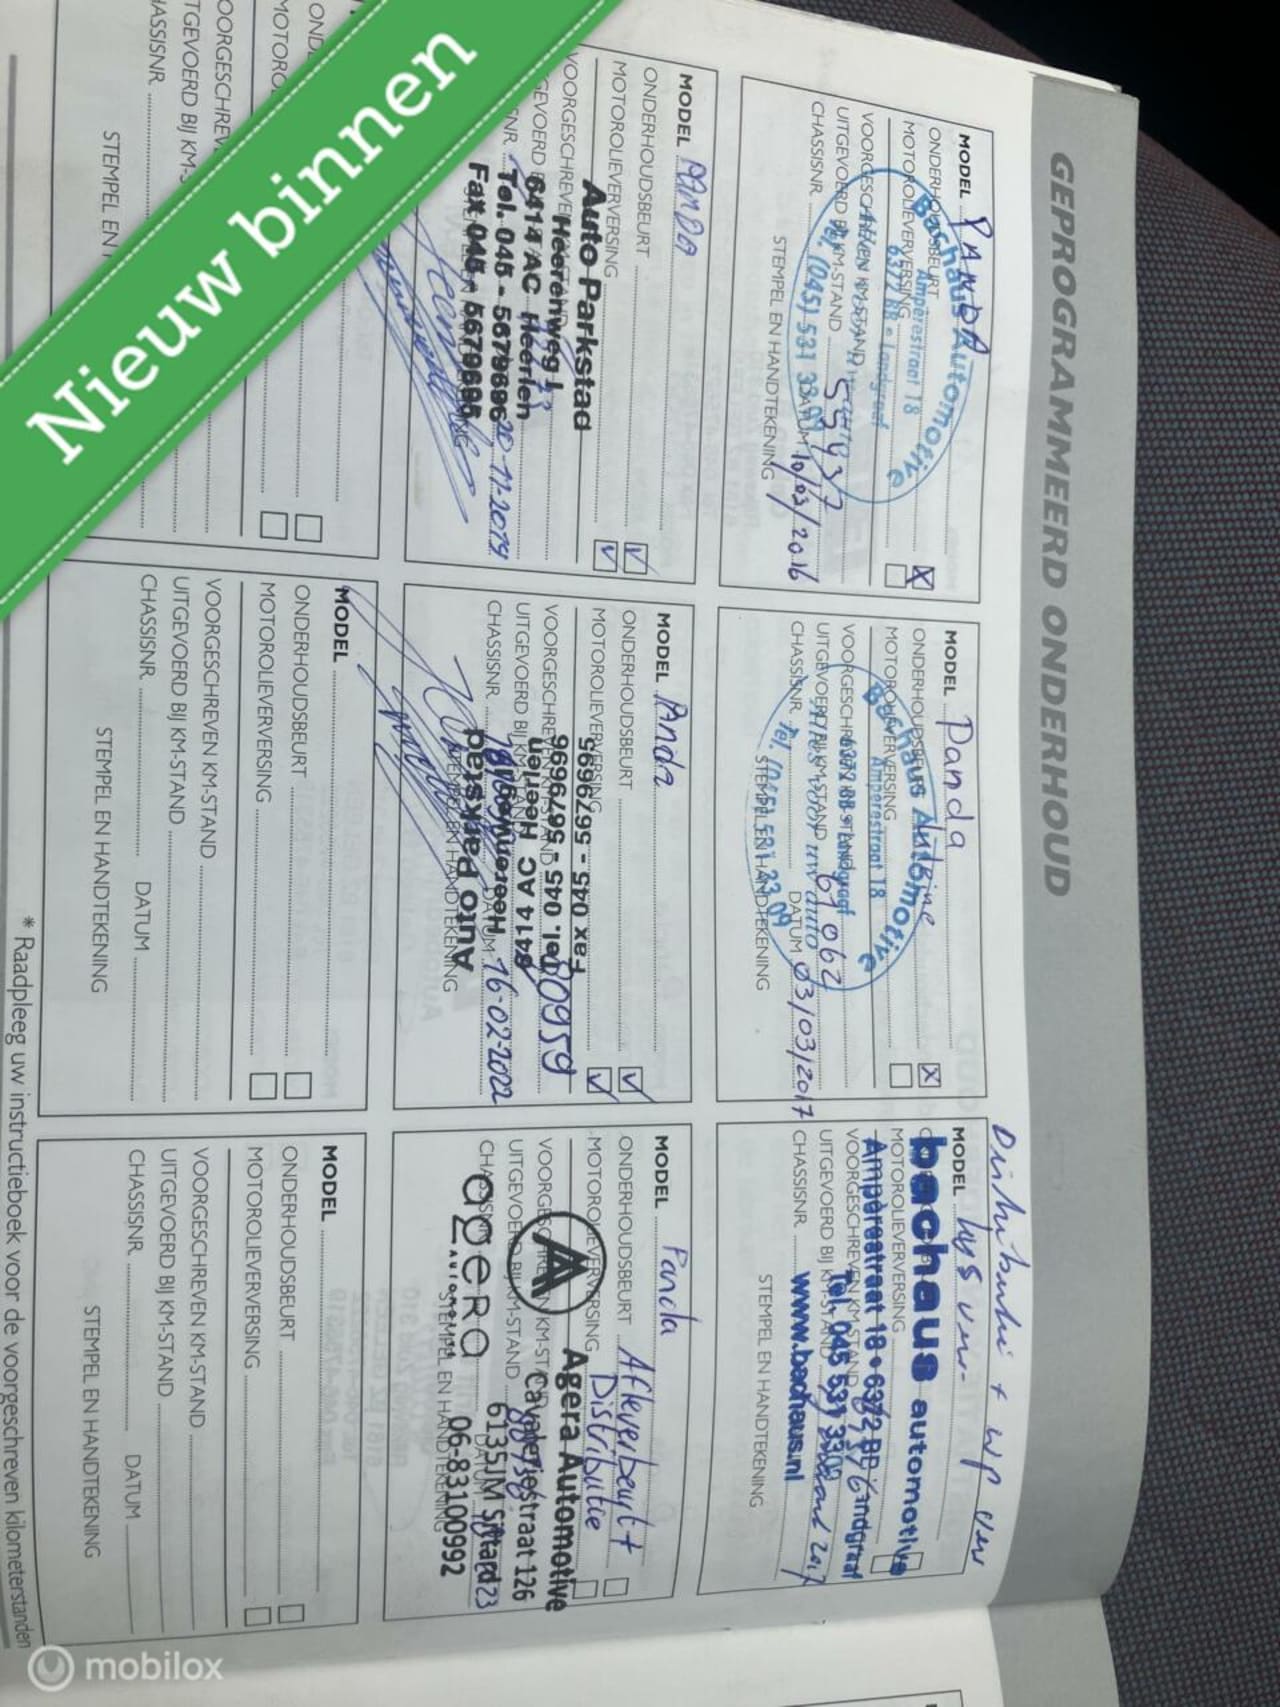 Nieuw binnen
GEPROGRAMMEERD ONDERHOUD
MODEL PANDA
ONDERHOUDSBEURT
MOTOROLIEVERVERSING
VOORGESCHREVEN KM-STAND
UITGEVOERD BIJ KM-STAND 55437
CHASSISNR. DATUM 10/03/2016
STEMPEL EN HANDTEKENING
Bachaus Automotive
Ampèrestraat 18
6372 BB - Landgraaf
Tel. (045) 531 33 09
MODEL Panda
ONDERHOUDSBEURT
MOTOROLIEVERVERSING
VOORGESCHREVEN KM-STAND
UITGEVOERD BIJ KM-STAND 61062
CHASSISNR. DATUM 03/03/2017
STEMPEL EN HANDTEKENING
Bachaus Automotive
Ampèrestraat 18
6372 BB - Landgraaf
Alles voor uw auto
Tel. (045) 531 33 09
MODEL
MOTOROLIEVERVERSING
VOORGESCHREVEN KM-STAND
UITGEVOERD BIJ KM-STAND
CHASSISNR.
STEMPEL EN HANDTEKENING
bachaus automotive
Ampèrestraat 18 • 6372 BB Landgraaf
Tel. 045 531 33 09
www.bachaus.nl
MODEL PANDA
ONDERHOUDSBEURT
MOTOROLIEVERVERSING
VOORGESCHREVEN
Auto Parkstad
Heerenweg 1
6414 AC Heerlen
Tel. 045 - 5679696
Fax 045 - 5679695
20-11-2019
MODEL Panda
ONDERHOUDSBEURT
MOTOROLIEVERVERSING
VOORGESCHREVEN KM-STAND
UITGEVOERD BIJ KM-STAND 80959
CHASSISNR. DATUM 16-02-2022
STEMPEL EN HANDTEKENING
Auto Parkstad
Heerenweg 1
6414 AC Heerlen
Tel. 045 - 5679696
Fax 045 - 5679695
MODEL Panda
ONDERHOUDSBEURT Afleverbeurt +
MOTOROLIEVERVERSING Distributie
VOORGESCHREVEN KM-STAND
UITGEVOERD BIJ KM-STAND
CHASSISNR. DATUM
STEMPEL EN HANDTEKENING
Agera Automotive
Cavaleriestraat 126
6135JM Sittard
06-83100992
agera
AUTOMOTIVE
STEMPEL EN
MODEL
ONDERHOUDSBEURT
MOTOROLIEVERVERSING
VOORGESCHREVEN KM-STAND
UITGEVOERD BIJ KM-STAND
CHASSISNR. DATUM
STEMPEL EN HANDTEKENING
MODEL
ONDERHOUDSBEURT
MOTOROLIEVERVERSING
VOORGESCHREVEN KM-STAND
UITGEVOERD BIJ KM-STAND
CHASSISNR. DATUM
STEMPEL EN HANDTEKENING
* Raadpleeg uw instructieboek voor de voorgeschreven kilometerstanden
mobilox